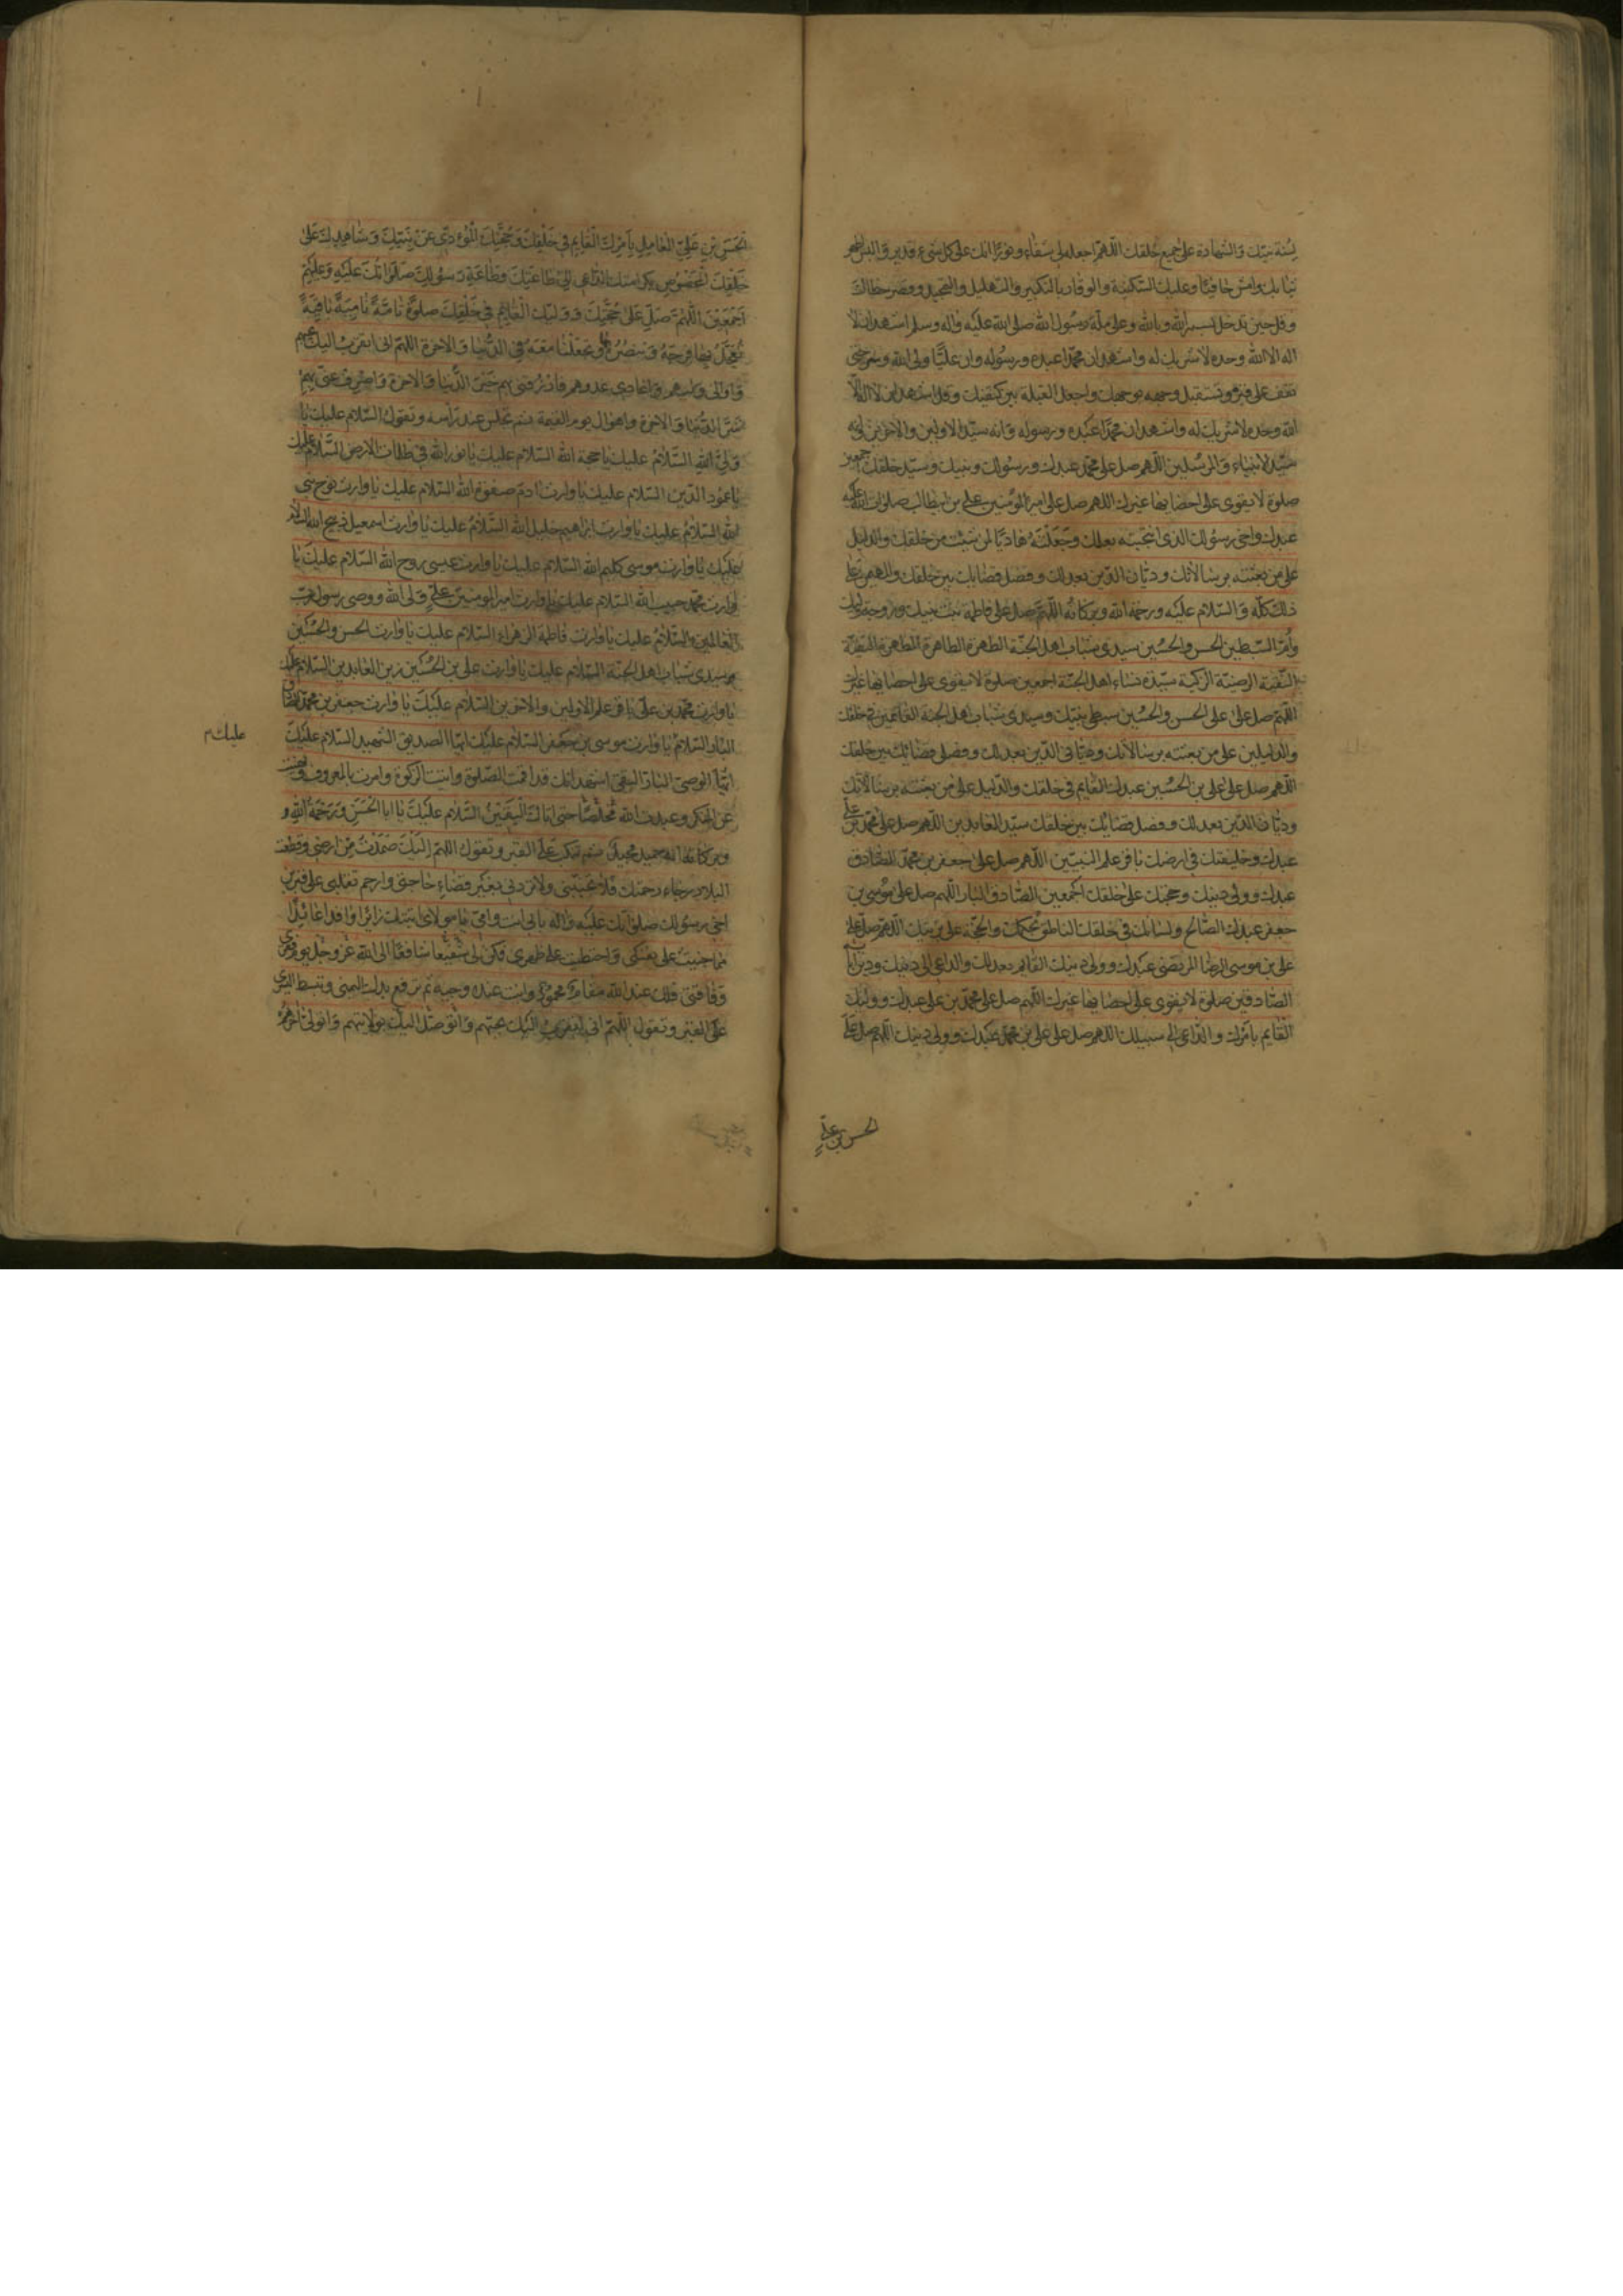 لسنة نبيك والشهادة على جميع خلقك اللهم اجعله لي شفاء ونورا انك على كل شيء قدير والبس اطهر
ثيابك وامش حافيا وعليك السكينة والوقار بالتكبير والتهليل والتمجيد وقصر خطاك
وقل حين تدخل بسم الله وبالله وعلى ملة رسول الله صلى الله عليه واله وسلم اشهد ان لا
اله الا الله وحده لا شريك له واشهد ان محمدا عبده ورسوله وان عليا ولي الله وسر حتى
تقف على قبره وتستقبل وجهه بوجهك واجعل القبلة بين كتفيك وقل اشهد ان لا اله الا
الله وحده لا شريك له واشهد ان محمدا عبده ورسوله وانه سيد الاولين والاخرين وانه
سيد الانبياء والمرسلين اللهم صل على محمد عبدك ورسولك ونبيك وسيد خلقك اجمعين
صلوة لا يقوى على احصائها غيرك اللهم صل على امير المؤمنين علي بن ابيطالب صلوات الله عليه
عبدك واخي رسولك الذي انتجبته بعلمك وجعلته هاديا لمن شئت من خلقك والدليل
على من بعثته برسالاتك وديان الدين بعدلك وفصل قضايك بين خلقك والمهيمن على
ذلك كله والسلام عليه ورحمة الله وبركاته اللهم صل على فاطمة بنت نبيك وزوجة وليك
وام السبطين الحسن والحسين سيدي شباب اهل الجنة الطهرة الطاهرة المطهرة التقية
النقية الرضية الزكية سيدة نساء اهل الجنة اجمعين صلوة لا يقوى على احصائها غيرك
اللهم صل على الحسن والحسين سبطي نبيك وسيدي شباب اهل الجنة القائمين في خلقك
والدليلين على من بعثته برسالاتك وديّاني الدين بعدلك وفصلي قضائك بين خلقك
اللهم صل على علي بن الحسين عبدك القايم في خلقك والدليل على من بعثته برسالاتك
وديان الدين بعدلك وفصل قضائك بين خلقك سيد العابدين اللهم صل على محمد بن علي
عبدك وخليفتك في ارضك باقر علم النبيين اللهم صل على جعفر بن محمد الصادق
عبدك وولي دينك وحجتك على خلقك اجمعين الصادق البار اللهم صل على موسى بن
جعفر عبدك الصالح ولسانك في خلقك الناطق بحكمك والحجة على بريتك اللهم صل على
علي بن موسى الرضا المرتضى عبدك وولي دينك القايم بعدلك والداعي الى دينك ودين ابائه
الصادقين صلوة لا يقوى على احصائها غيرك اللهم صل على محمد بن علي عبدك ووليك
القايم بامرك والداعي الى سبيلك اللهم صل على علي بن محمد عبدك وولي دينك اللهم صل على
الحسن بن علي
الحسن بن علي العامل بامرك القايم في خلقك وحجتك المؤدي عن نبيك وشاهدك على
خلقك المخصوص بكرامتك الداعي الى طاعتك وطاعة رسولك صلواتك عليه وعليهم
اجمعين اللهم صل على حجتك ووليك القايم في خلقك صلوة تامة نامية باقية
تعجل بها فرجه وتنصره بها وتجعلنا معه في الدنيا والاخرة اللهم اني اتقرب اليك بحبهم
واوالي وليهم واعادي عدوهم فارزقني بهم خير الدنيا والاخرة واصرف عني بهم
شر الدنيا والاخرة واهوال يوم القيمة ثم تجلس عند راسه وتقول السلام عليك يا
ولي الله السلام عليك يا حجة الله السلام عليك يا نور الله في ظلمات الارض السلام عليك
يا عمود الدين السلام عليك يا وارث ادم صفوة الله السلام عليك يا وارث نوح نبي
الله السلام عليك يا وارث ابراهيم خليل الله السلام عليك يا وارث اسمعيل ذبيح الله السلام
عليك يا وارث موسى كليم الله السلام عليك يا وارث عيسى روح الله السلام عليك يا
وارث محمد حبيب الله السلام عليك يا وارث امير المومنين علي ولي الله ووصي رسول رب
العالمين السلام عليك يا وارث فاطمة الزهراء السلام عليك يا وارث الحسن والحسين
سيدي شباب اهل الجنة السلام عليك يا وارث علي بن الحسين زين العابدين السلام عليك
يا وارث محمد بن علي باقر علم الاولين والاخرين السلام عليك يا وارث جعفر بن محمد الصادق
البار السلام يا وارث موسى بن جعفر السلام عليك ايها الصديق الشهيد السلام عليك
عليك م
ايها الوصي البار التقي اشهد انك قد اقمت الصلوة واتيت الزكوة وامرت بالمعروف ونهيت
عن المنكر وعبدت الله مخلصا حتى اتاك اليقين السلام عليك يا ابا الحسن ورحمة الله و
وبركاته انه حميد مجيد ثم تنكب على القبر وتقول اللهم اليك صمدت من ارضي وقطعت
البلاد رجاء رحمتك فلا تخيبني ولا تردني بغير قضاء حاجتي وارحم تقلبي على قبر ابن
اخي رسولك صلواتك عليه واله بابي انت وامي يا مولاي اتيتك زائرا وافدا عائذا
مما جنيت على نفسي واحتطبت على ظهري فكن لي شفيعا شافعا الى الله عز وجل يوم فقري
وفاقتي فلك عند الله مقام محمود وانت عنده وجيه ثم ترفع يدك اليمنى وتبسط اليسرى
على القبر وتقول اللهم اني اتقرب اليك بحبهم واتوصل اليك بولايتهم واتولى اخرهم